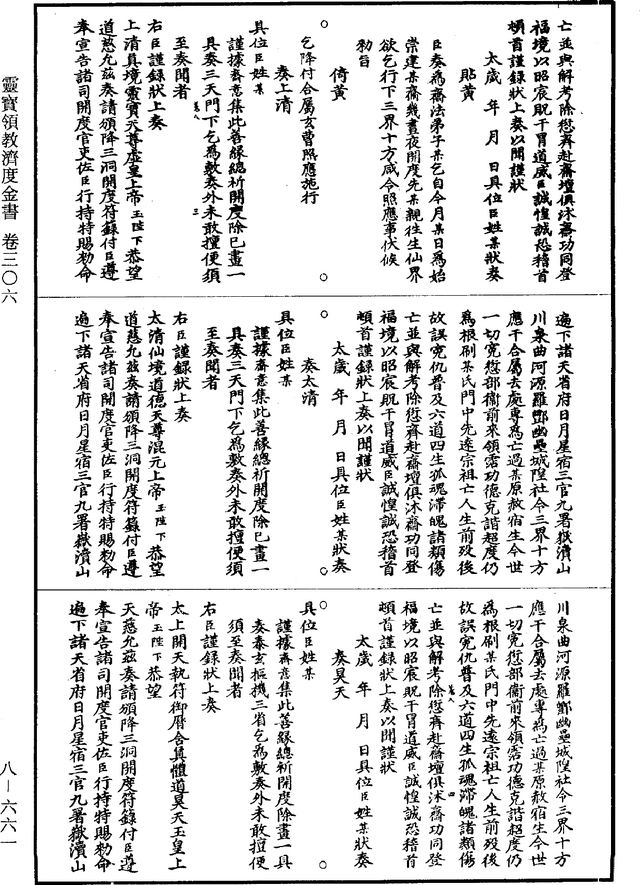 亡並與解考除愆齊赴齋壇俱沐齋功同登
福境以昭宸貺干冒道威臣誠惶誠恐稽首
頓首謹錄狀上奏以聞謹狀
太歲 年 月 日具位臣姓某狀奏
貼黃
臣奏為齋法弟子某乞自今月某日為始
崇建某齋幾晝夜開度先某親往生仙界
欲乞行下三界十方咸令照應事伏候
勑旨
倚黃
乞降付合屬玄曹照應施行
奏上清
具位臣姓某
謹據齋意集此善緣總祈開度除已畫一
具奏三天門下乞為敷奏外未敢擅便須
至奏聞者
右臣謹錄狀上奏
上清真境靈寶天尊虛皇上帝玉陛下恭望
道慈允茲奏請頒降三洞開度符籙付臣遵
奉宣告諸司開度官吏佐臣行持特賜勑命
遍下諸天省府日月星宿三官九署嶽瀆山
川泉曲河源羅酆幽壘城隍社令三界十方
應干合屬去處專為亡過某原赦宿生今世
一切冤愆部衞前來領霑功德克諧超度仍
為根刷某氏門中先遠宗祖亡人生前歿後
故誤冤仇普及六道四生孤魂滯魄諸類傷
亡並與解考除愆齊赴齋壇俱沐齋功同登
福境以昭宸貺干冒道威臣誠惶誠恐稽首
頓首謹錄狀上奏以聞謹狀
太歲 年 月 日具位臣姓某狀奏
奏太清
具位臣姓某
謹據齋意集此善緣總祈開度除已畫一
具奏三天門下乞為敷奏外未敢擅便須
至奏聞者
右臣謹錄狀上奏
太清仙境道德天尊混元上帝玉陛下恭望
道慈允茲奏請頒降三洞開度符籙付臣遵
奉宣告諸司開度官吏佐臣行持特賜勑命
遍下諸天省府日月星宿三官九署嶽瀆山
川泉曲河源羅酆幽壘城隍社令三界十方
應干合屬去處專為亡過某原赦宿生今世
一切冤愆部衞前來領霑功德克諧超度仍
為根刷某氏門中先遠宗祖亡人生前歿後
故誤冤仇普及六道四生孤魂滯魄諸類傷
亡並與解考除愆齊赴齋壇俱沐齋功同登
福境以昭宸貺干冒道威臣誠惶誠恐稽首
頓首謹錄狀上奏以聞謹狀
太歲 年 月 日具位臣姓某狀奏
奏昊天
具位臣姓某
謹據齋意集此善緣總祈開度除畫一具
奏泰玄樞機三省乞為敷奏外未敢擅便
須至奏聞者
右臣謹錄狀上奏
太上開天執符御曆合真體道昊天玉皇上
帝玉陛下恭望
天慈允茲奏請頒降三洞開度符籙付臣遵
奉宣告諸司開度官吏佐臣行持特賜勑命
遍下諸天省府日月星宿三官九署嶽瀆山
靈寶領教濟度金書 卷三〇六
八－六六一